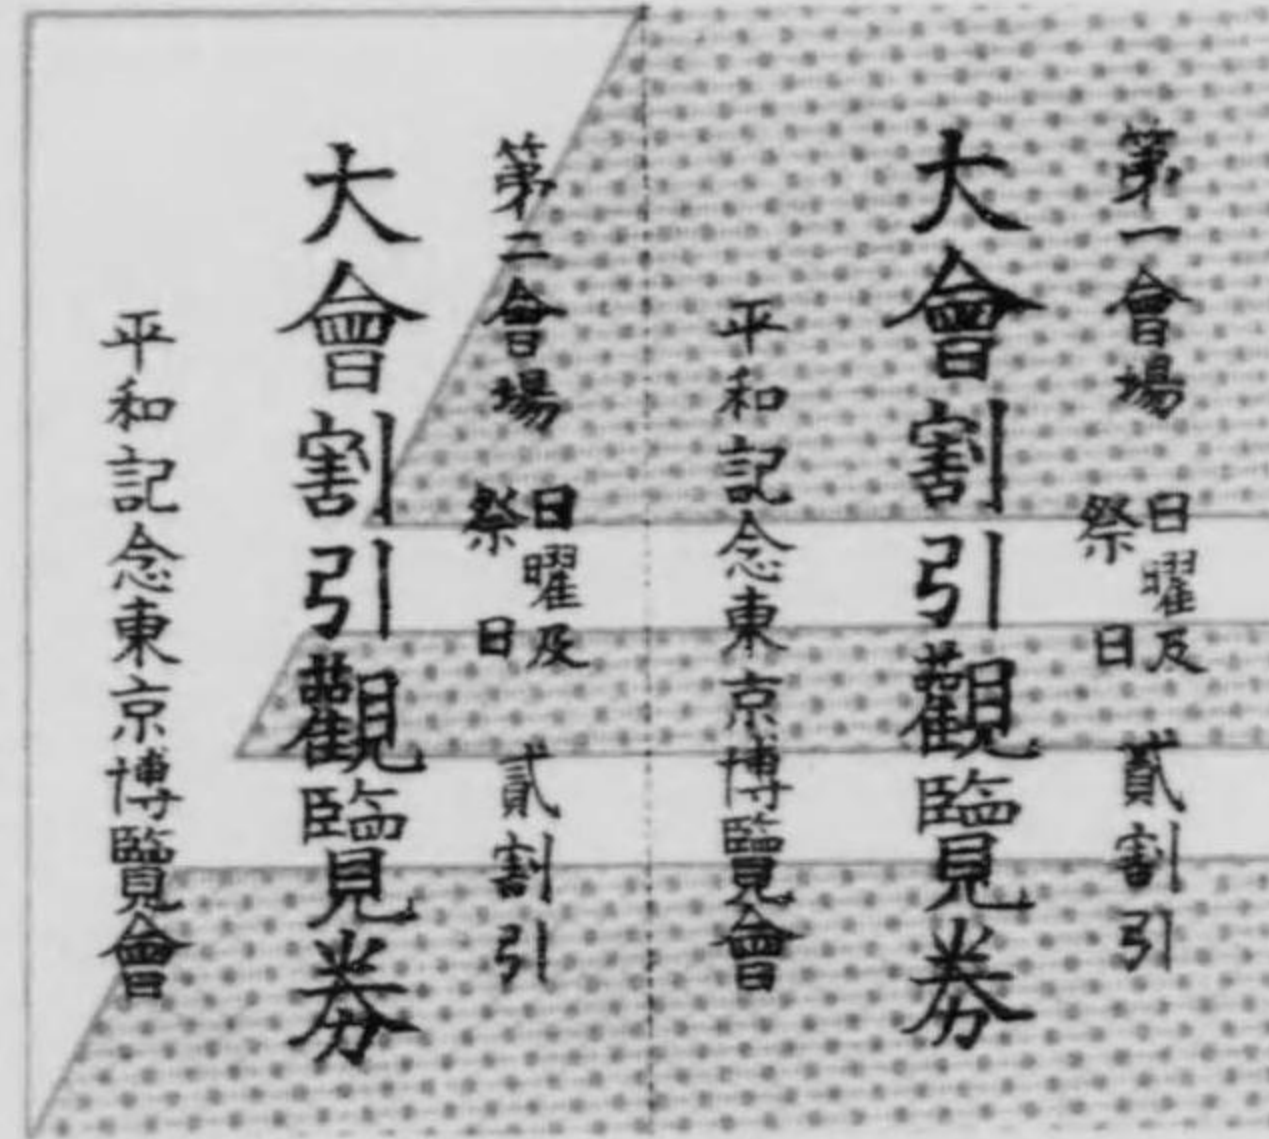 第一會場 日曜及祭日 貳割引
大會割引觀覽券
平和記念東京博覽會
第二會場 日曜及祭日 貳割引
大會割引觀覽券
平和記念東京博覽會